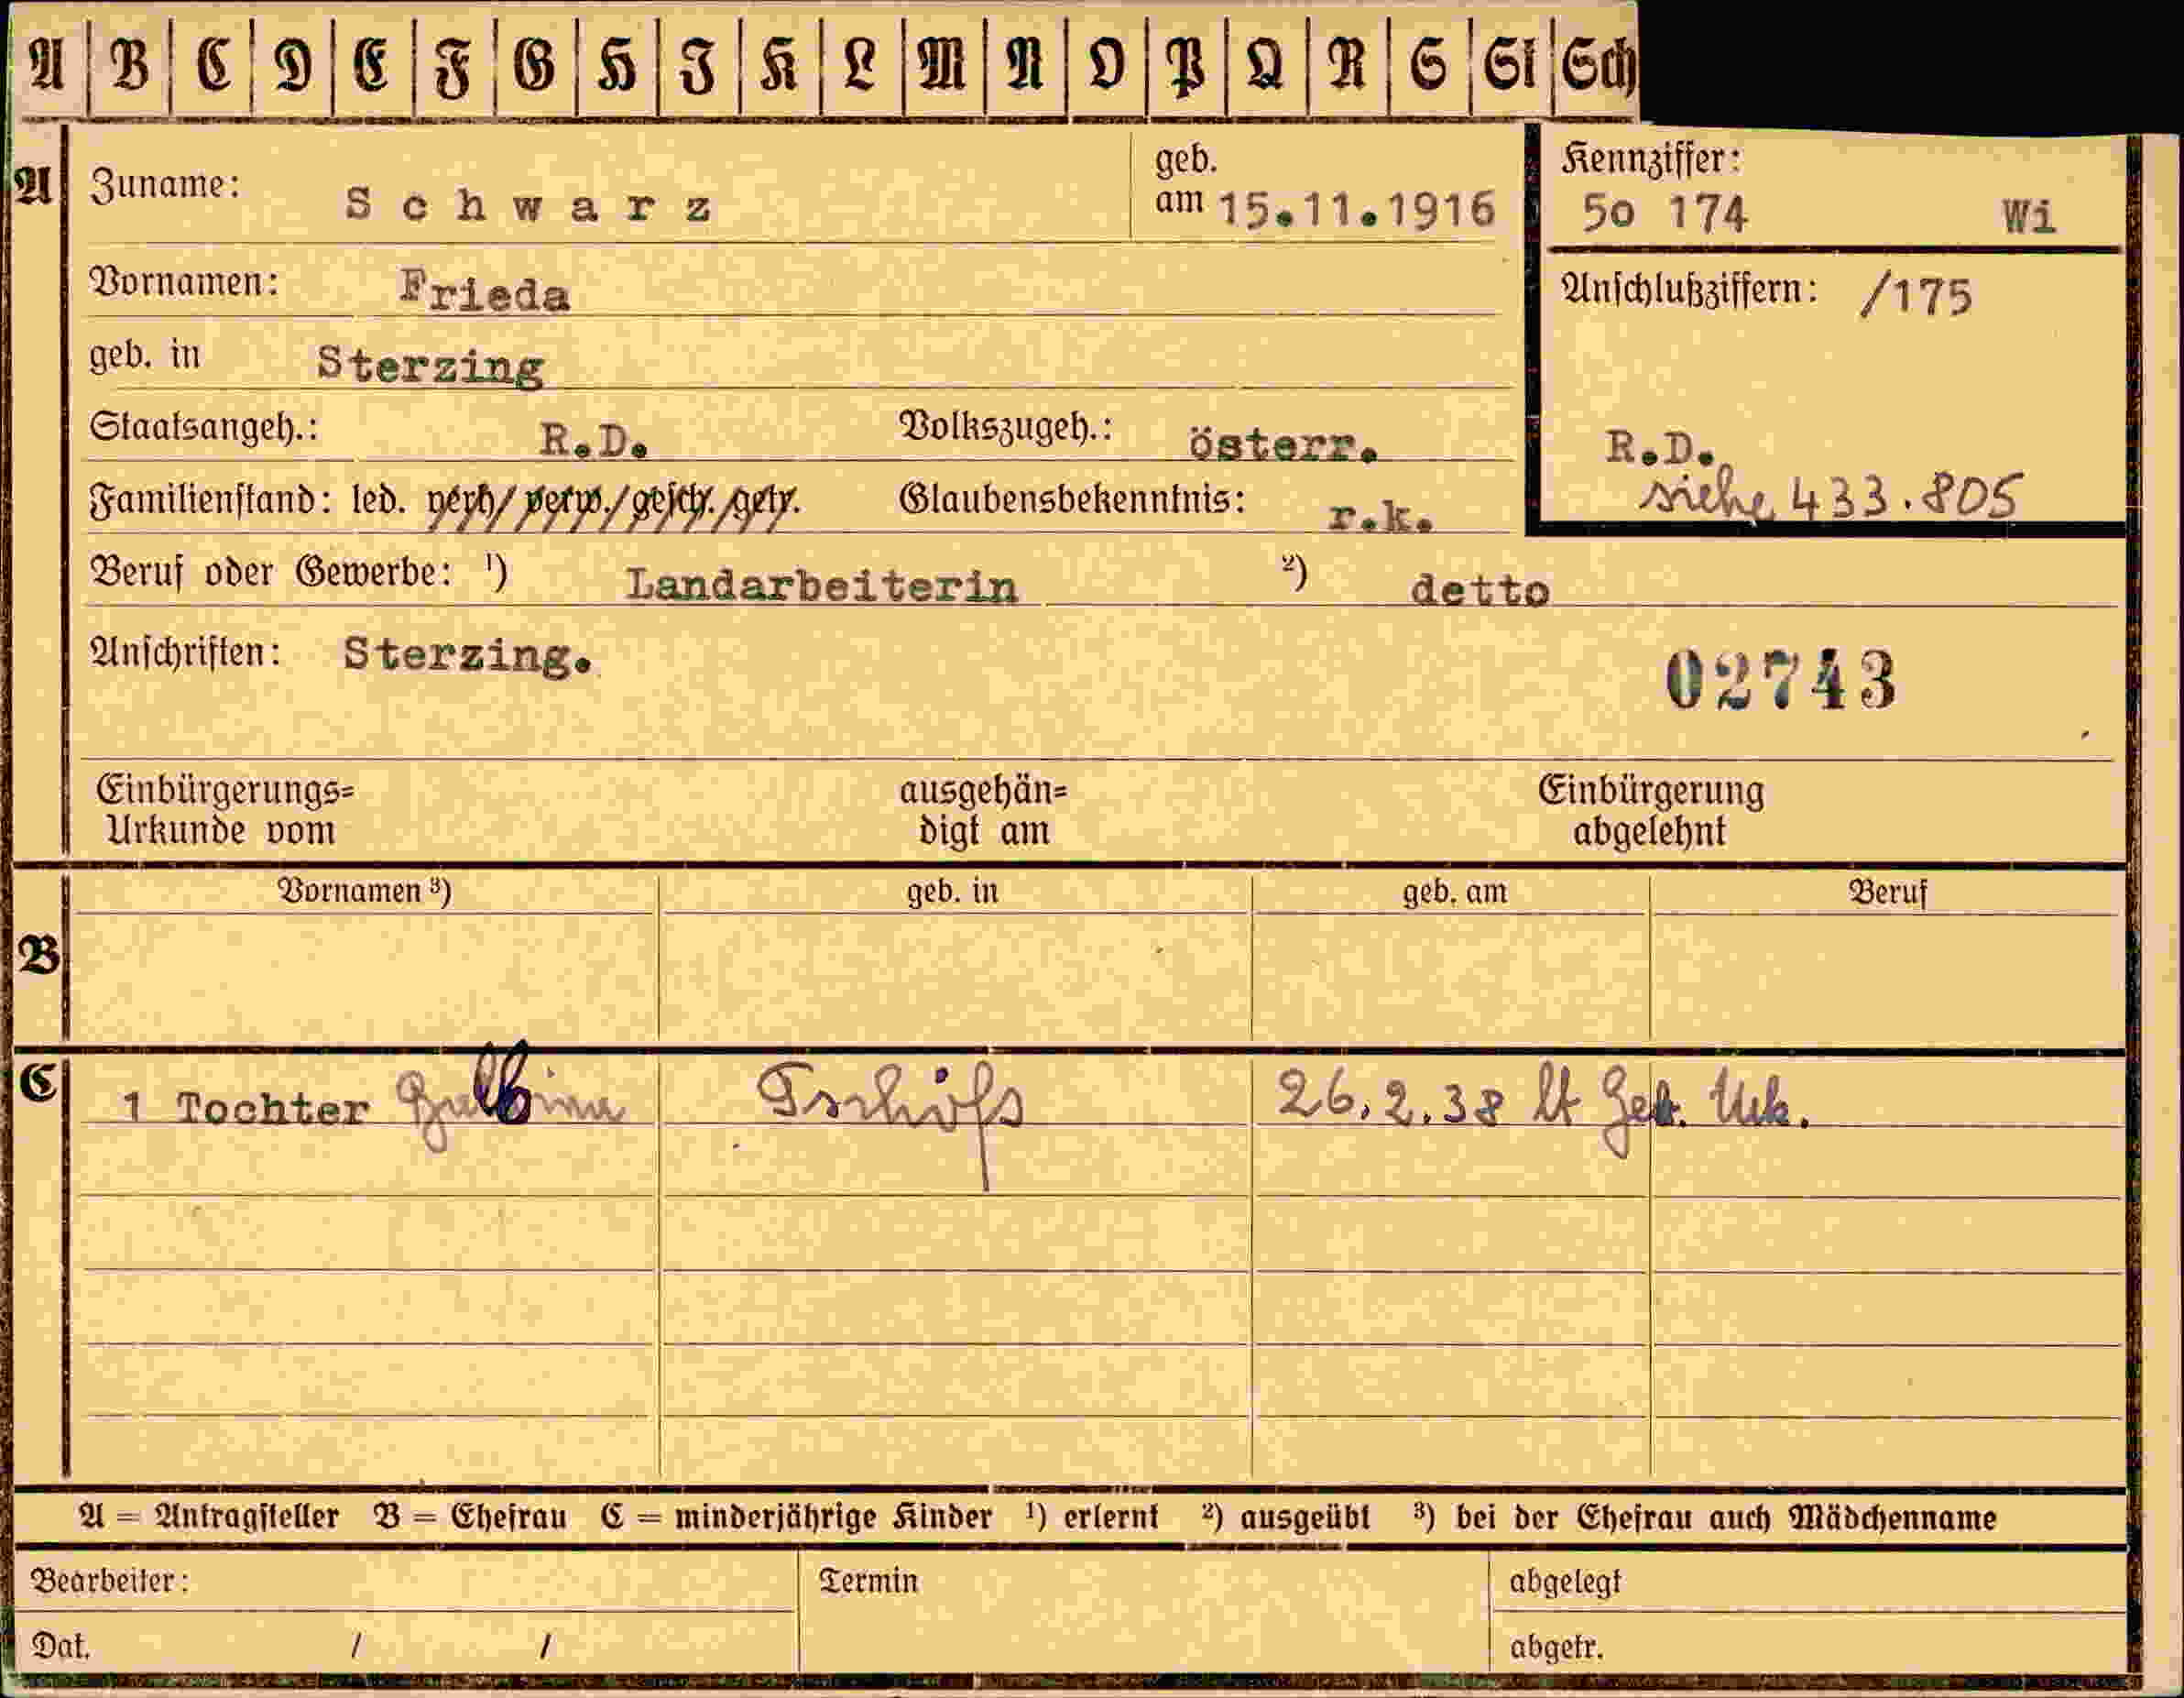 A B C D E F G H J K L M N O P Q R S St Sch
A Zuname: Schwarz geb. am 15.11.1916 Kennziffer: 5o 174 Wi
Vornamen: Frieda Anschlußziffern: /175
geb. in Sterzing
Staatsangeh.: R.D. Volkszugeh.: österr. R.D.
Familienstand: led. verh/ verw./gesch./getr. Glaubensbekenntnis: r.k. siehe 433.805
Beruf oder Gewerbe: ¹) Landarbeiterin ²) detto
Anschriften: Sterzing. 02743
Einbürgerungs= ausgehän= Einbürgerung
Urkunde vom digt am abgelehnt
Vornamen ³) geb. in geb. am Beruf
B
C 1 Tochter Balbina Tschöfs 26.2.38 lt Geb. Urk.
A = Antragsteller B = Ehefrau C = minderjährige Kinder ¹) erlernt ²) ausgeübt ³) bei der Ehefrau auch Mädchenname
Bearbeiter: Termin abgelegt
Dat. / / abgetr.